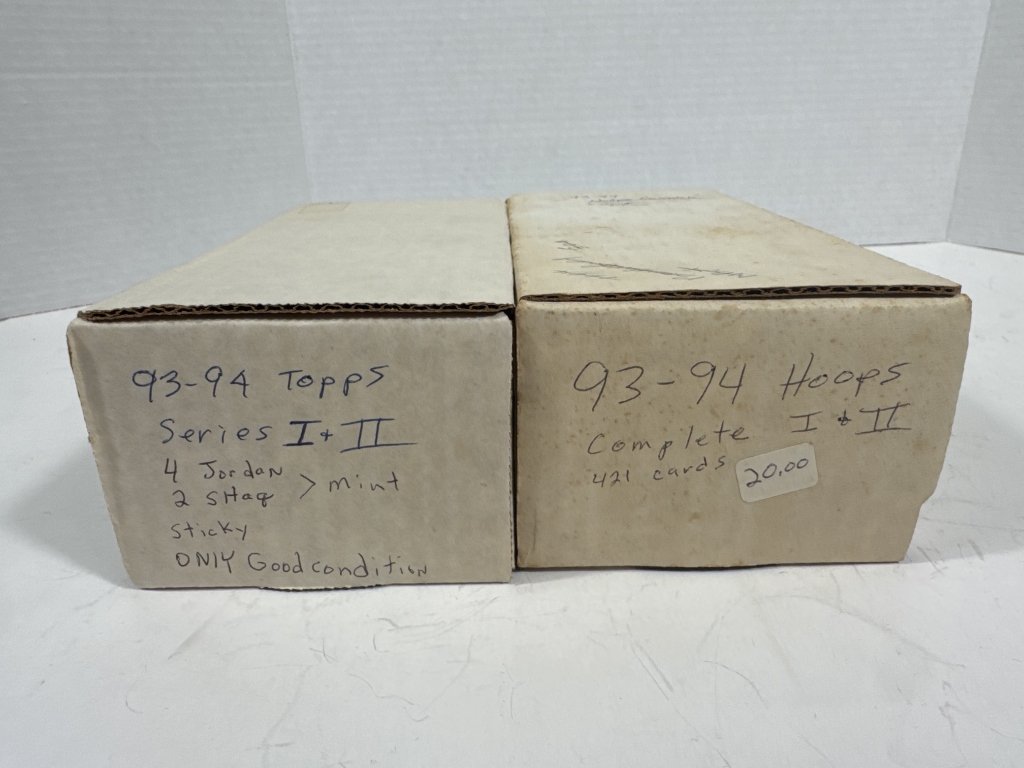 93-94 Topps
Series I + II
4 Jordan
2 SHaq > mint
sticky
ONLY Good condition
93-94 Hoops
I & II
Complete
421 cards
20.00